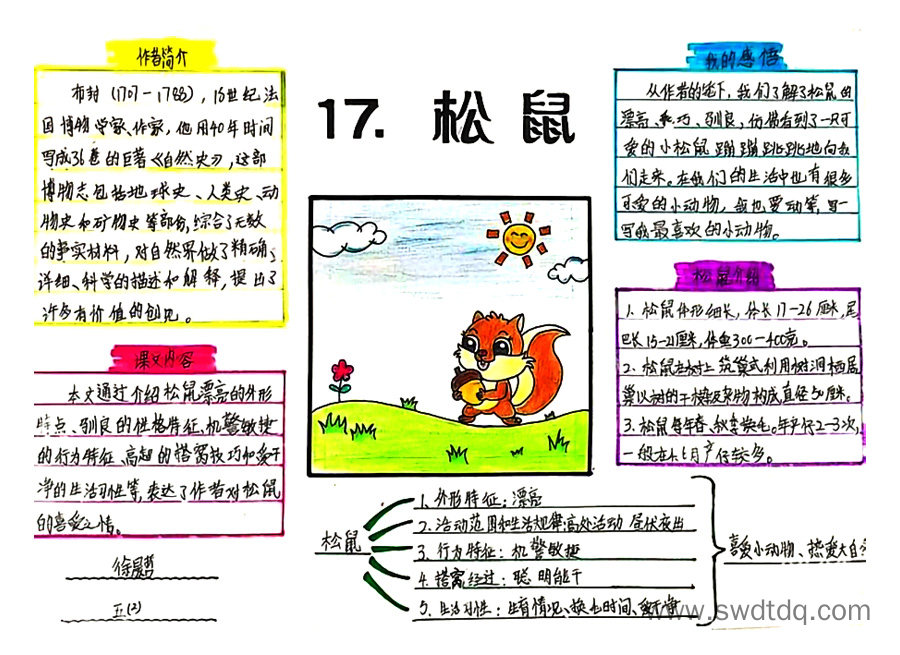 17. 松鼠
作者简介
布封(1707-1788),18世纪法
国博物学家、作家,他用40年时间
写成36卷的巨著《自然史》,这部
博物志包括地球史、人类史、动
物史和矿物史等部份,综合了无数
的事实材料,对自然界做了精确、
详细、科学的描述和解释,提出了
许多有价值的创见。
课文内容
本文通过介绍松鼠漂亮的外形
特点、驯良的性格特征、机警敏捷
的行为特征、高超的搭窝技巧和爱干
净的生活习性等,表达了作者对松鼠
的喜爱之情。
五(2)
我的感悟
从作者的笔下,我们了解了松鼠的
漂亮、乖巧、驯良,仿佛看到了一只可
爱的小松鼠蹦蹦跳跳地向我
们走来。在我们的生活中也有很多
可爱的小动物,我也要动笔,写一
写我最喜欢的小动物。
松鼠介绍
1. 松鼠体形细长,体长17-26厘米,尾
巴长15-21厘米,体重300-400克。
2. 松鼠在树上筑巢或利用树洞栖居
巢以树的干枝及杂物构成,直径50厘米。
3. 松鼠每年春、秋季换毛。年产仔2-3次,
一般在4、6月产仔较多。
松鼠
1. 外形特征:漂亮
2. 活动范围和生活规律:高处活动 昼伏夜出
3. 行为特征:机警敏捷
4. 搭窝经过:聪明能干
5. 生活习性:生育情况、换毛时间、爱干净
喜爱小动物、热爱大自
www.swdtdq.com